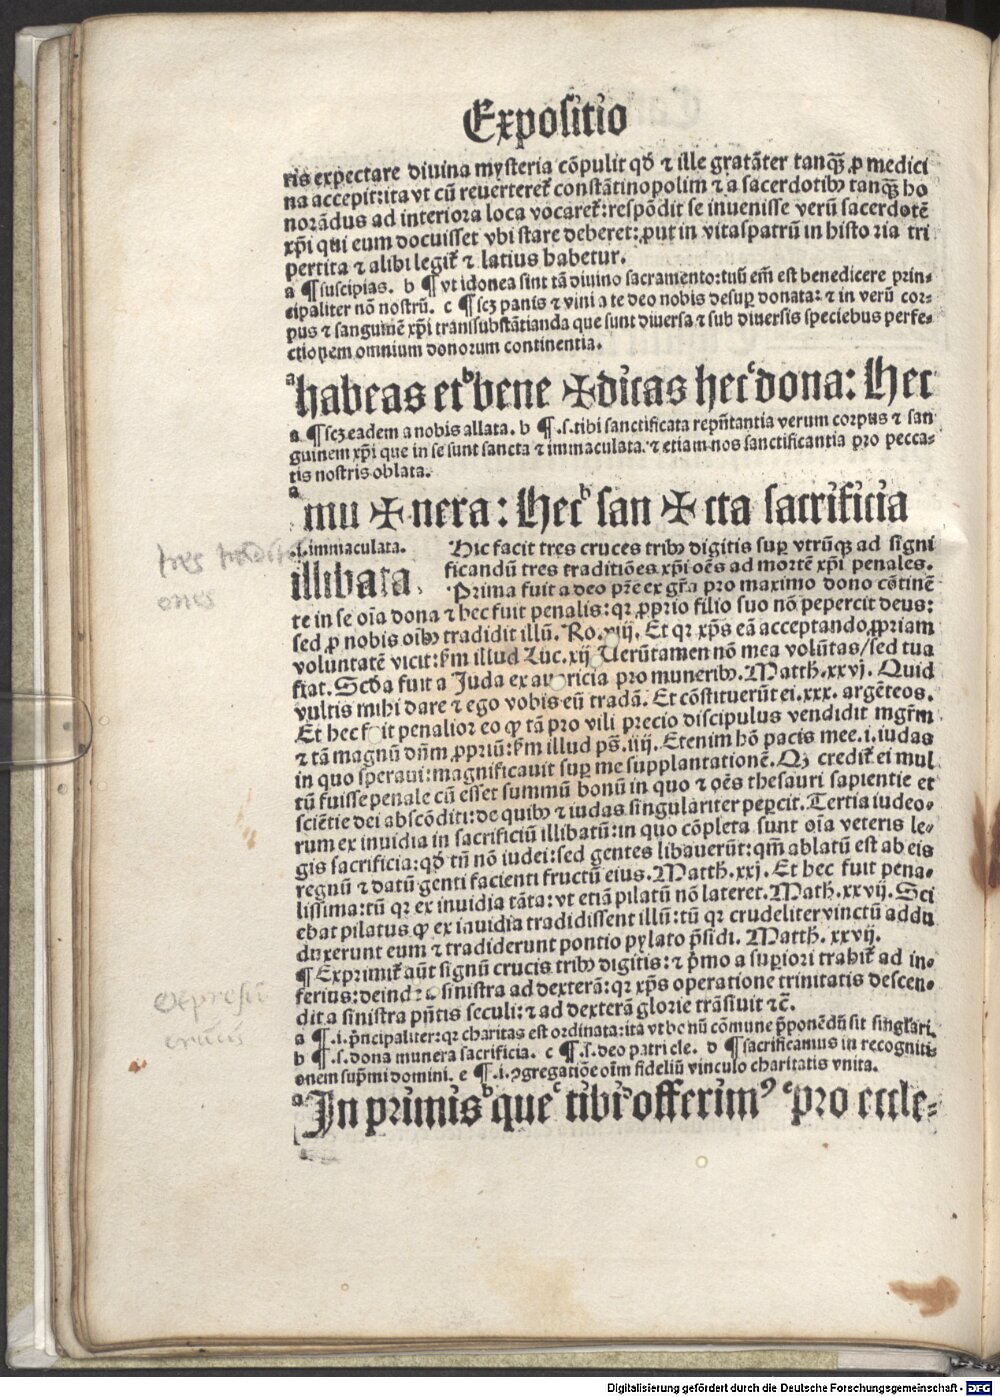 Expositio
ris expectare diuina mysteria cōpulit qđ ⁊ ille gratāter tanqꝫ ꝓ medici
na accepit:ita vt cū reuerteret᷑ constātinopolim ⁊ a sacerdotibꝰ tanqꝫ ho
norādus ad interiora loca vocaret᷑:respōdit se inuenisse verū sacerdotē
xp̄i qui eum docuisset vbi stare deberet:ꝓut in vitaspatrū in historia tri
pertita ⁊ alibi legit᷑ ⁊ latius habetur.
a ¶ suscipias. b ¶ vt idonea sint tā diuino sacramento:tuū em̄ est benedicere prin⸗
cipaliter nō nostrū. c ¶ scꝫ panis ⁊ vini a te deo nobis desuꝑ donata: ⁊ in verū cor⸗
pus ⁊ sanguinē xp̄i transsubstātianda que sunt diuersa ⁊ sub diuersis speciebus perfe⸗
ctionem omnium donorum continentia.
a habeas et b bene ✠ dicas hec c dona: Hec
a ¶ scꝫ eadem a nobis allata. b ¶ .s. tibi sanctificata repn̄tantia verum corpus ⁊ san
guinem xp̄i que in se sunt sancta ⁊ immaculata. ⁊ etiam nos sanctificantia pro pecca⸗
tis nostris oblata.
a mu ✠ nera: Hec b san ✠ cta sacrificia
tres traditi
ones
.i. immaculata.
illibata.
Hic facit tres cruces tribꝰ digitis suꝑ vtrūqꝫ ad signi
ficandū tres traditiōes xp̄i oēs ad mortē xp̄i penales.
Prima fuit a deo pr̄e ex gr̄a pro maximo dono cōtinē
te in se oīa dona ⁊ hec fuit penalis:qꝛ ꝓprio filio suo nō pepercit deus:
sed ꝓ nobis oībꝰ tradidit illū. Ro. viij. Et qꝛ xp̄s eā acceptando ꝓpriam
voluntatē vicit:ẜm illud Luc. xij Uerūtamen nō mea volūtas/sed tua
fiat. Scđa fuit a Juda ex auaricia pro muneribꝰ. Matth. xxvj. Quid
vultis mihi dare ⁊ ego vobis eū tradā. Et cōstituerūt ei .xxx. argēteos.
Et hec fuit penalior eo ꝙ tā pro vili precio discipulus vendidit mgr̄m
⁊ tā magnū dn̄m ꝓpriū:ẜm illud ps̄. iiij. Etenim hō pacis mee .i. iudas
in quo speraui:magnificauit suꝑ me supplantationē. Qꝫ credit᷑ ei mul
tū fuisse penale cū esset summū bonū in quo ⁊ oēs thesauri sapientie et
sciētie dei abscōditi:de quibꝰ ⁊ iudas singulariter peꝑcit. Tertia iudeo⸗
rum ex inuidia in sacrificiū illibatū:in quo cōpleta sunt oīa veteris le⸗
gis sacrificia:qđ tn̄ nō iudei:sed gentes libauerūt:qm̄ ablatū est ab eis
regnū ⁊ datū genti facienti fructū eius. Matth. xxj. Et hec fuit pena⸗
lissima:tū qꝛ ex inuidia tāta:vt etiā pilatū nō lateret. Math. xxvij. Sci
ebat pilatus ꝙ ex inuidia tradidissent illū:tū qꝛ crudeliter vinctū addu
duxerunt eum ⁊ tradiderunt pontio pylato p̄sidi. Matth. xxvij.
¶ Exprimit᷑ aūt signū crucis tribꝰ digitis: ⁊ p̄mo a suꝑiori trahit᷑ ad in⸗
ferius:deinde a sinistra ad dexterā:qꝛ xp̄s operatione trinitatis descen⸗
dit a sinistra pn̄tis seculi: ⁊ ad dexterā glorie trāsiuit ⁊c̄.
crucis
a ¶ .i. p̄ncipaliter:qꝛ charitas est ordinata:ita vt bonū cōmune p̄ponēdū sit singlari.
b ¶ .s. dona munera sacrificia. c ¶ .s. deo patri cle. d ¶ sacrificamus in recogniti⸗
onem sup̄mi domini. e ¶ .i. ↄgregatiōe oīm fideliū vinculo charitatis vnita.
a In primis b que c tibi d offerimꝰ e pro eccle⸗
Digitalisierung gefördert durch die Deutsche Forschungsgemeinschaft - DFG